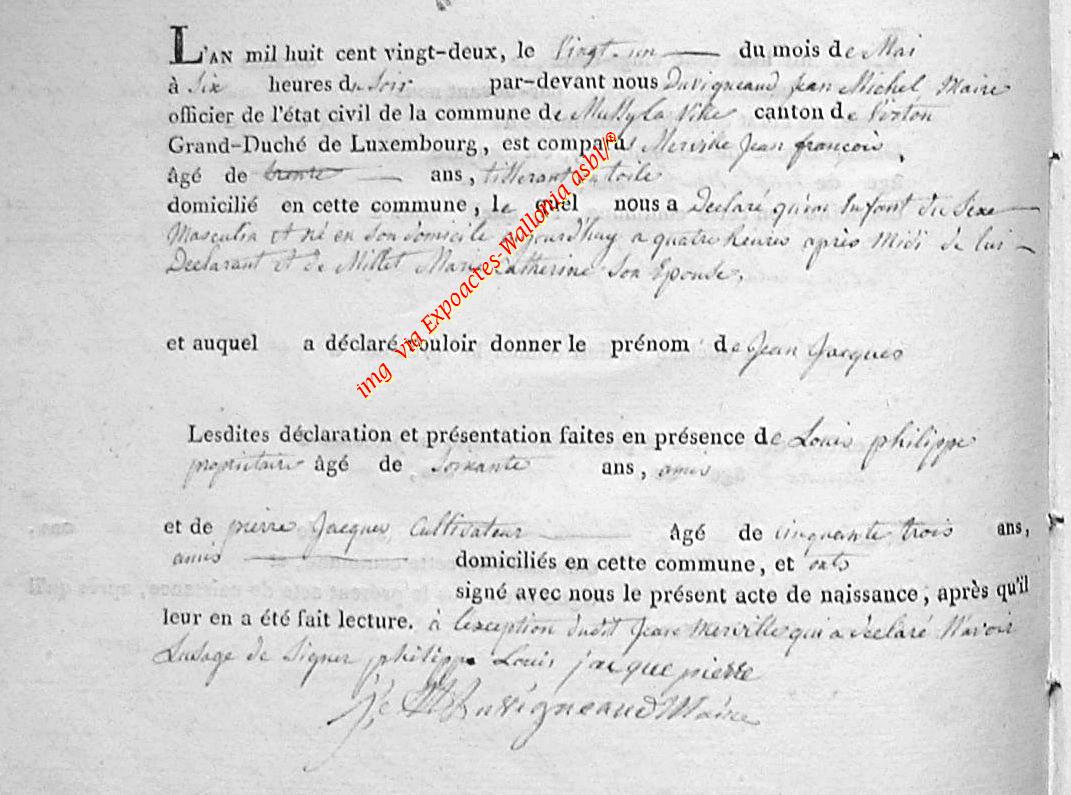 L'AN mil huit cent vingt-deux, le Vingt-un du mois de Mai
à Six heures du Soir par-devant nous Duvigneaud Jean Michel Maire
officier de l'état civil de la commune de Mussy la Ville canton de Virton
Grand-Duché de Luxembourg, est comparu Merville Jean françois,
âgé de trente ans, tisserant en toile
domicilié en cette commune, lequel nous a Declaré qu'un Enfant du Sexe
Masculin et né en Son domicile aujourdhuy a quatre heures après Midi de lui
Declarant et de Millet Marie Catherine Son Epouse,
et auquel a déclaré vouloir donner le prénom de Jean Jacques
Lesdites déclaration et présentation faites en présence de Louis philippe
propriétaire âgé de Soixante ans, amis
et de pierre Jacques Cultivateur âgé de cinquante trois ans,
amis domiciliés en cette commune, et onts
signé avec nous le présent acte de naissance, après qu'il
leur en a été fait lecture. à lexception dudit Jean Merville qui a declaré N'avoir
Lusage de Signer philippe Louis jacque pierre
Duvigneaud Maire
img via Expoactes-Wallonia asbl/®